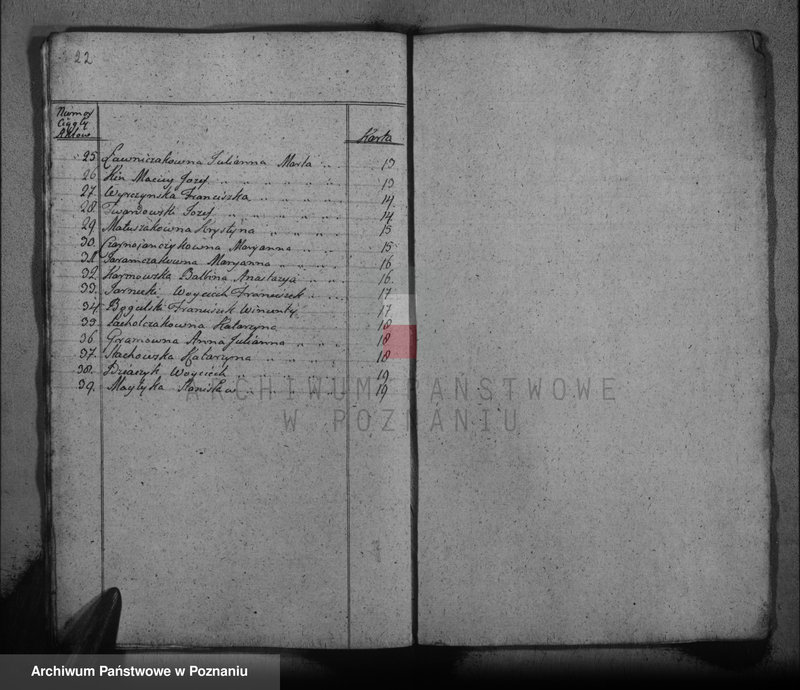 22
Numer
Ciągły
Aktow
Karta
25. Ławniczakowna Julianna Marta 13
26 Kin Maciey Jozef 13
27. Wyrczynska Franciszka 14
28. Twardowski Jozef 14
29. Matuszakowna Krystyna 15
30. Czaynojanczykowna Maryanna 15
31. Maryanna 16
32. Karmowska Balbina Anastazya 16
33. Jarnecki Woyciech Franciszek 17
34. Bogulski Franciszek Wincenty 17
35. Pacholczakowna Katarzyna 18
36. Goramowna Anna Julianna 18
37. Stachowska Katarzyna 18
38. Woyciech 19
39. Stanisław 19
ARCHIWUM PAŃSTWOWE
W POZNANIU
Archiwum Państwowe w Poznaniu